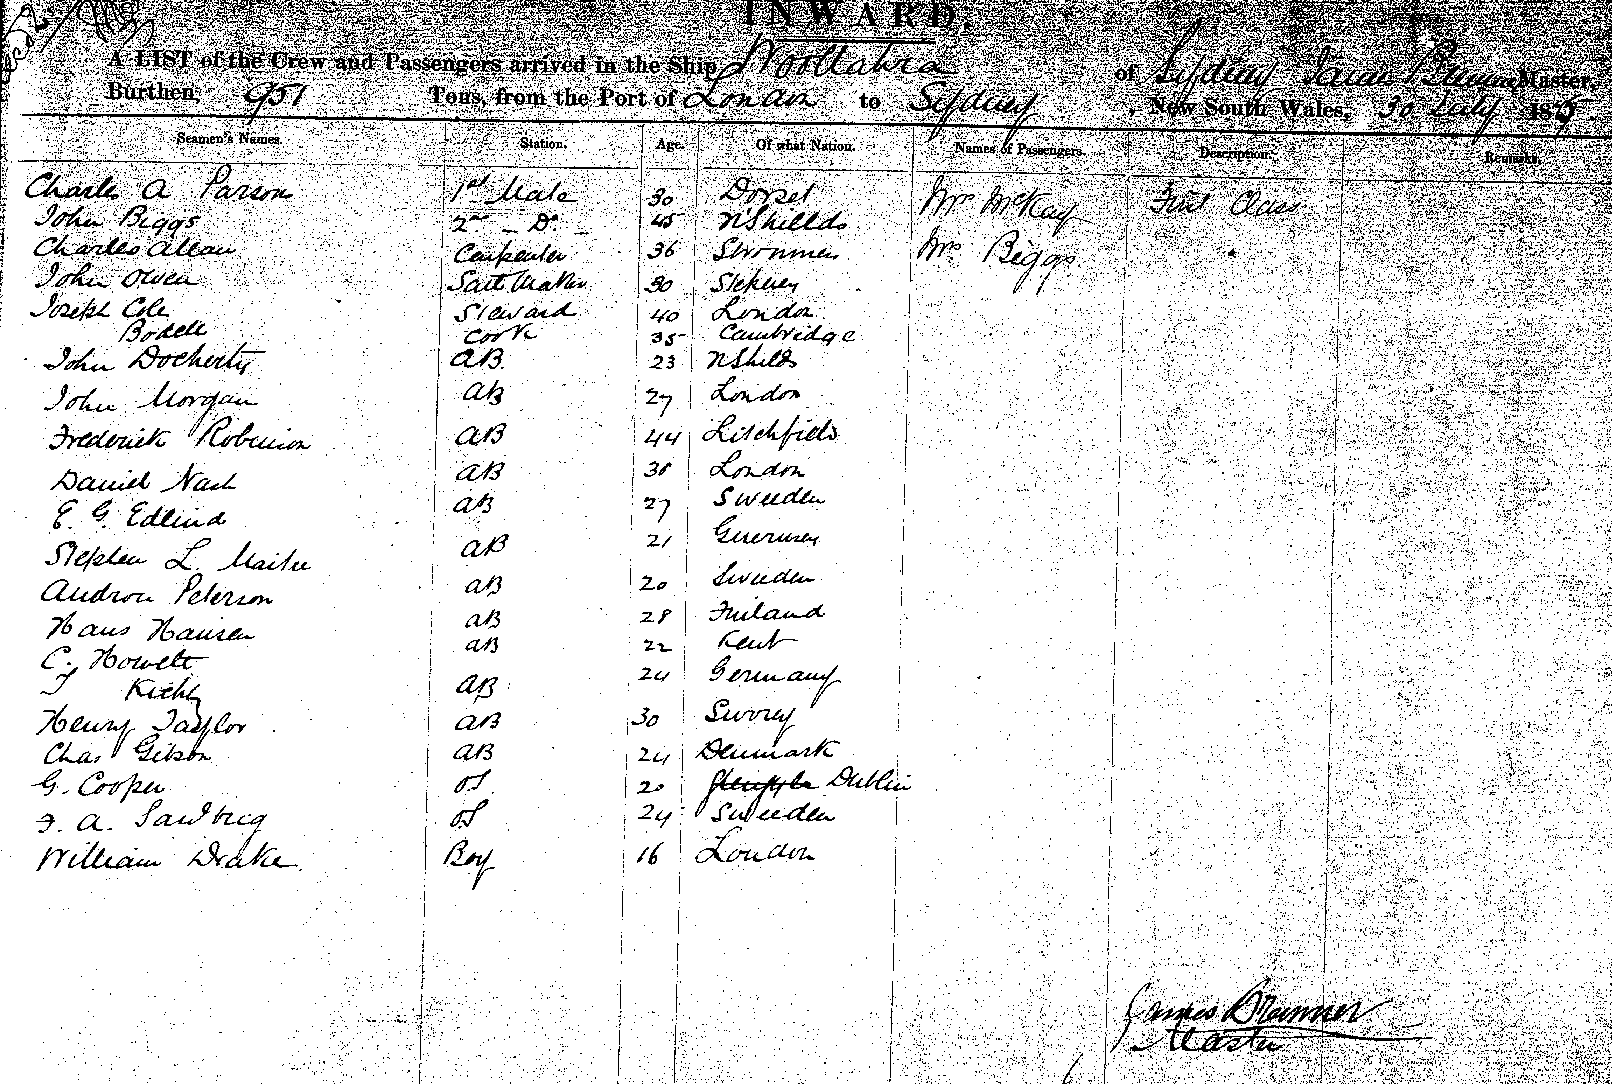 INWARD.
A LIST of the Crew and Passengers arrived in the Ship Woollahra of Sydney Master,
Burthen, 951 Tons, from the Port of London to Sydney, New South Wales, 30 July 1875
Seamen's Names. Station. Age. Of what Nation. Names of Passengers. Description. Remarks.
Charles A Parson 1st Mate 30 Dorset Mrs McKay First Class
John Biggs 2nd - Do - 45 N Shields
Charles Allan Carpenter 36 Stromness Mrs Biggs "
John Owen Sail Maker 30 Stepney
Joseph Cole Steward 40 London
Bodell Cook 35 Cambridge
John Docherty AB. 23 N Shilds
John Morgan AB 27 London
Frederick Robinson AB 44 Litchfield
Daniel Nash AB 38 London
E. G. Edlind AB 27 Sweeden
Stephen L. AB 21 Guernsey
Androu Peterson AB 20 Sweeden
Hans Hansen AB 28 Finland
C. Howett AB 22 Kent
AB 24 Germany
Henry Taylor AB 30
Chas Gibson AB 24 Denmark
G. Cooper OS 20 Dublin
F. A. OS 24 Sweeden
William Drake Boy 16 London
James Brunner
Master